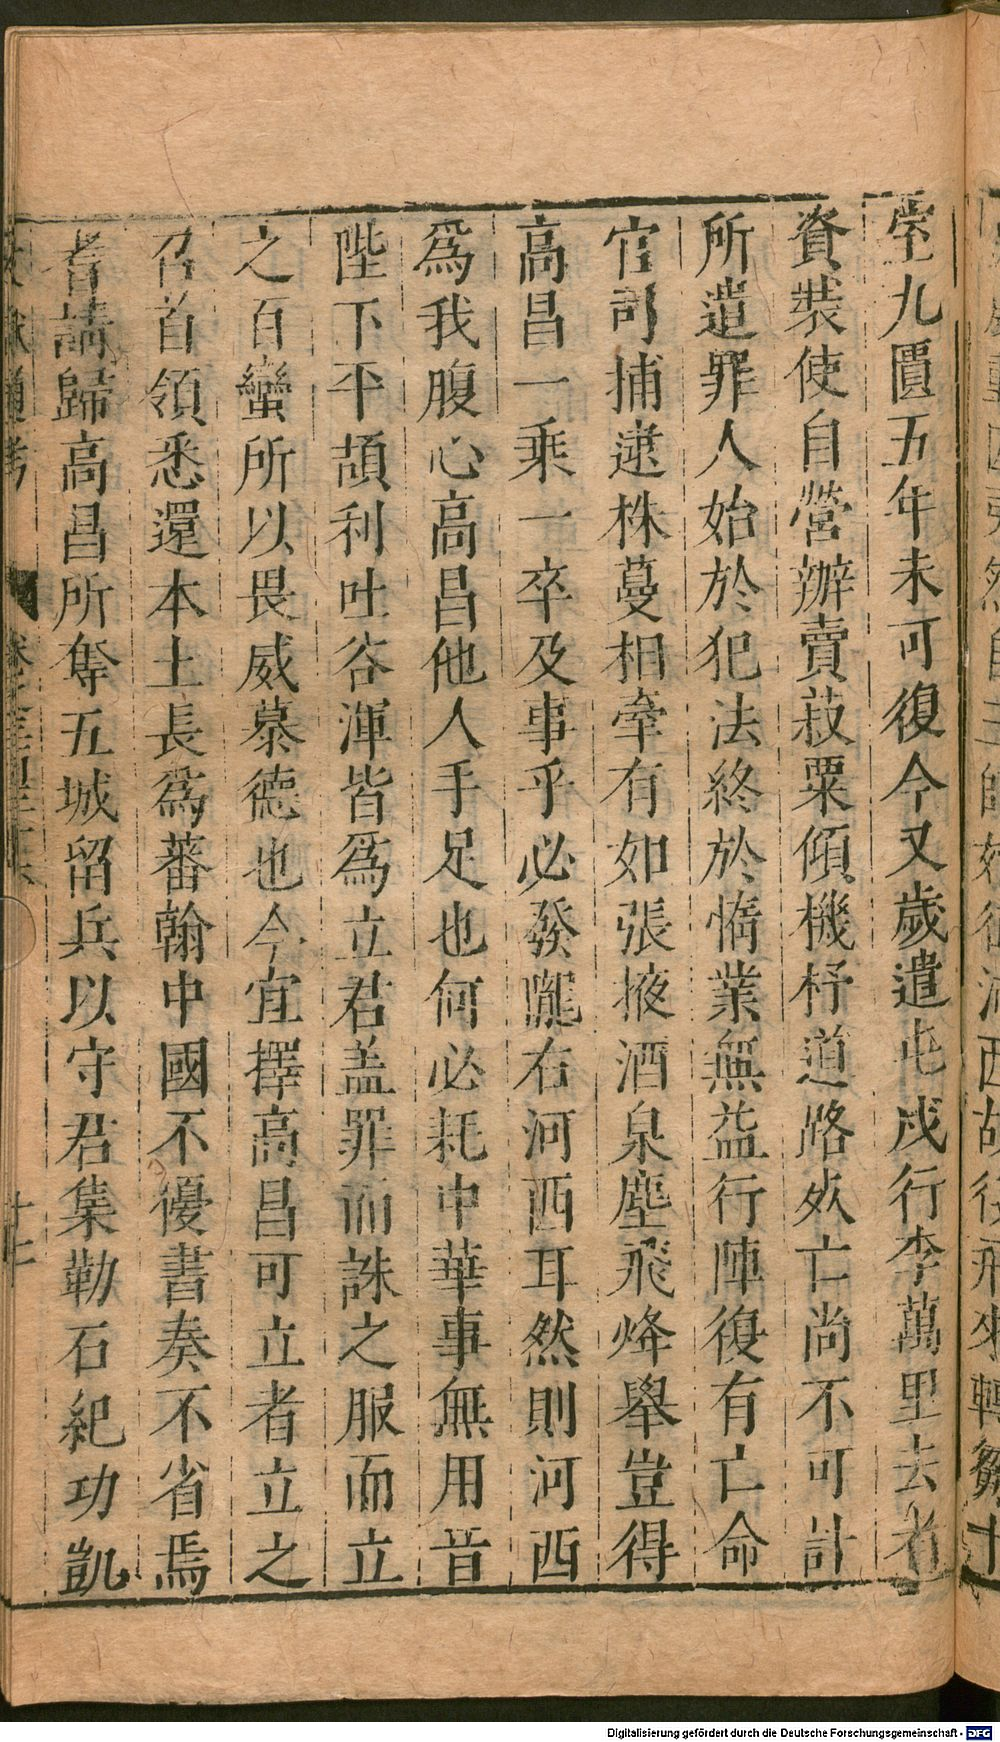 室九匱五年未可復今又歲遣屯戍行李萬里去者
資裝使自營辦賣菽粟傾機杼道路死亡尚不可計
所遣罪人始於犯法終於惰業無益行陣復有亡命
官司捕逮株蔓相牽有如張掖酒泉塵飛烽舉豈得
高昌一乘一卒及事乎必發隴右河西耳然則河西
爲我腹心高昌他人手足也何必耗中華事無用昔
陛下平頡利吐谷渾皆爲立君盖罪而誅之服而立
之百蠻所以畏威慕德也今宜擇高昌可立者立之
召首領悉還本土長爲蕃翰中國不擾書奏不省焉
耆請歸高昌所奪五城留兵以守君集勒石紀功凱
文獻通考
Digitalisierung gefördert durch die Deutsche Forschungsgemeinschaft - DFG